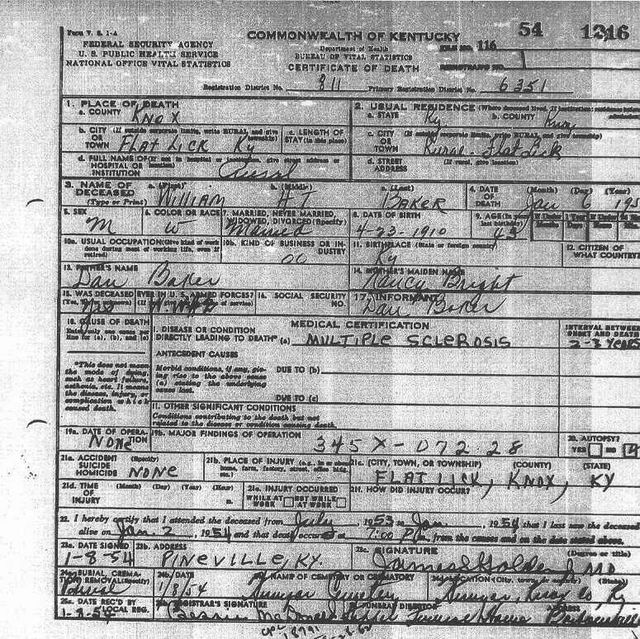 Form V. S. 1-A
FEDERAL SECURITY AGENCY
U. S. PUBLIC HEALTH SERVICE
NATIONAL OFFICE VITAL STATISTICS
COMMONWEALTH OF KENTUCKY
Department of Health
BUREAU OF VITAL STATISTICS
CERTIFICATE OF DEATH
54 1316
FILE NO. 116
REGISTRAR'S NO. 1
Registration District No. 811 Primary Registration District No. 6351
1. PLACE OF DEATH
a. COUNTY KNOX
2. USUAL RESIDENCE (Where deceased lived.
a. STATE Ky b. COUNTY Knox
b. CITY (If outside corporate limits, write RURAL and give
OR TOWN FLAT LICK Ky
c. LENGTH OF STAY (in this place)
c. CITY
OR TOWN Rural - Flat Lick
d. FULL NAME OF (If not in hospital or institution, give street address or location)
HOSPITAL OR INSTITUTION Rural
d. STREET ADDRESS (If rural, give location)
3. NAME OF DECEASED (Type or Print)
a. (First) WILLIAM b. (Middle) H.T. c. (Last) BAKER
4. DATE OF DEATH (Month) (Day) (Year) Jan 6 195
5. SEX M
6. COLOR OR RACE W
7. MARRIED, NEVER MARRIED, WIDOWED, DIVORCED (Specify) Married
8. DATE OF BIRTH 4-23-1910
9. AGE (In years last birthday) 43
10a. USUAL OCCUPATION (Give kind of work done during most of working life, even if retired)
10b. KIND OF BUSINESS OR INDUSTRY 00
11. BIRTHPLACE (State or foreign country) Ky
12. CITIZEN OF WHAT COUNTRY
13. FATHER'S NAME Dan Baker
14. MOTHER'S MAIDEN NAME Nancy Bright
15. WAS DECEASED EVER IN U. S. ARMED FORCES? yes
16. SOCIAL SECURITY NO.
17. INFORMANT Dan Baker
18. CAUSE OF DEATH
Enter only one cause per line for (a), (b), and (c)
MEDICAL CERTIFICATION
INTERVAL BETWEEN ONSET AND DEATH
I. DISEASE OR CONDITION DIRECTLY LEADING TO DEATH* (a) MULTIPLE SCLEROSIS 2-3 YEARS
ANTECEDENT CAUSES
Morbid conditions, if any, giving rise to the above cause (a) stating the underlying cause last.
DUE TO (b)
DUE TO (c)
*This does not mean the mode of dying such as heart failure, asthenia, etc. It means the disease, injury, or complication which caused death.
II. OTHER SIGNIFICANT CONDITIONS
Conditions contributing to the death but not related to the disease or condition causing death.
19a. DATE OF OPERATION NONE
19b. MAJOR FINDINGS OF OPERATION 345X-072-28
20. AUTOPSY? YES NO
21a. ACCIDENT SUICIDE HOMICIDE (Specify) NONE
21b. PLACE OF INJURY
21c. (CITY, TOWN, OR TOWNSHIP) (COUNTY) (STATE)
FLAT LICK, KNOX, KY
21d. TIME OF INJURY (Month) (Day) (Year) (Hour) m.
21e. INJURY OCCURRED WHILE AT WORK NOT WHILE AT WORK
21f. HOW DID INJURY OCCUR?
22. I hereby certify that I attended the deceased from July, 1953 to Jan, 1954 that I last saw the deceased
alive on Jan 2, 1954 and that death occurred at 7:00 P m., from the causes and on the date stated above.
23a. DATE SIGNED 1-8-54
23b. ADDRESS PINEVILLE, KY.
23c. SIGNATURE (Degree or title) MD
24a. BURIAL, CREMATION, REMOVAL (Specify) Burial
24b. DATE 1/8/54
24c. NAME OF CEMETERY OR CREMATORY Cemetery
24d. LOCATION (City, town, or county) (State) Ky
25a. DATE REC'D BY LOCAL REG.
25b. REGISTRAR'S SIGNATURE
26. FUNERAL DIRECTOR Funeral Home